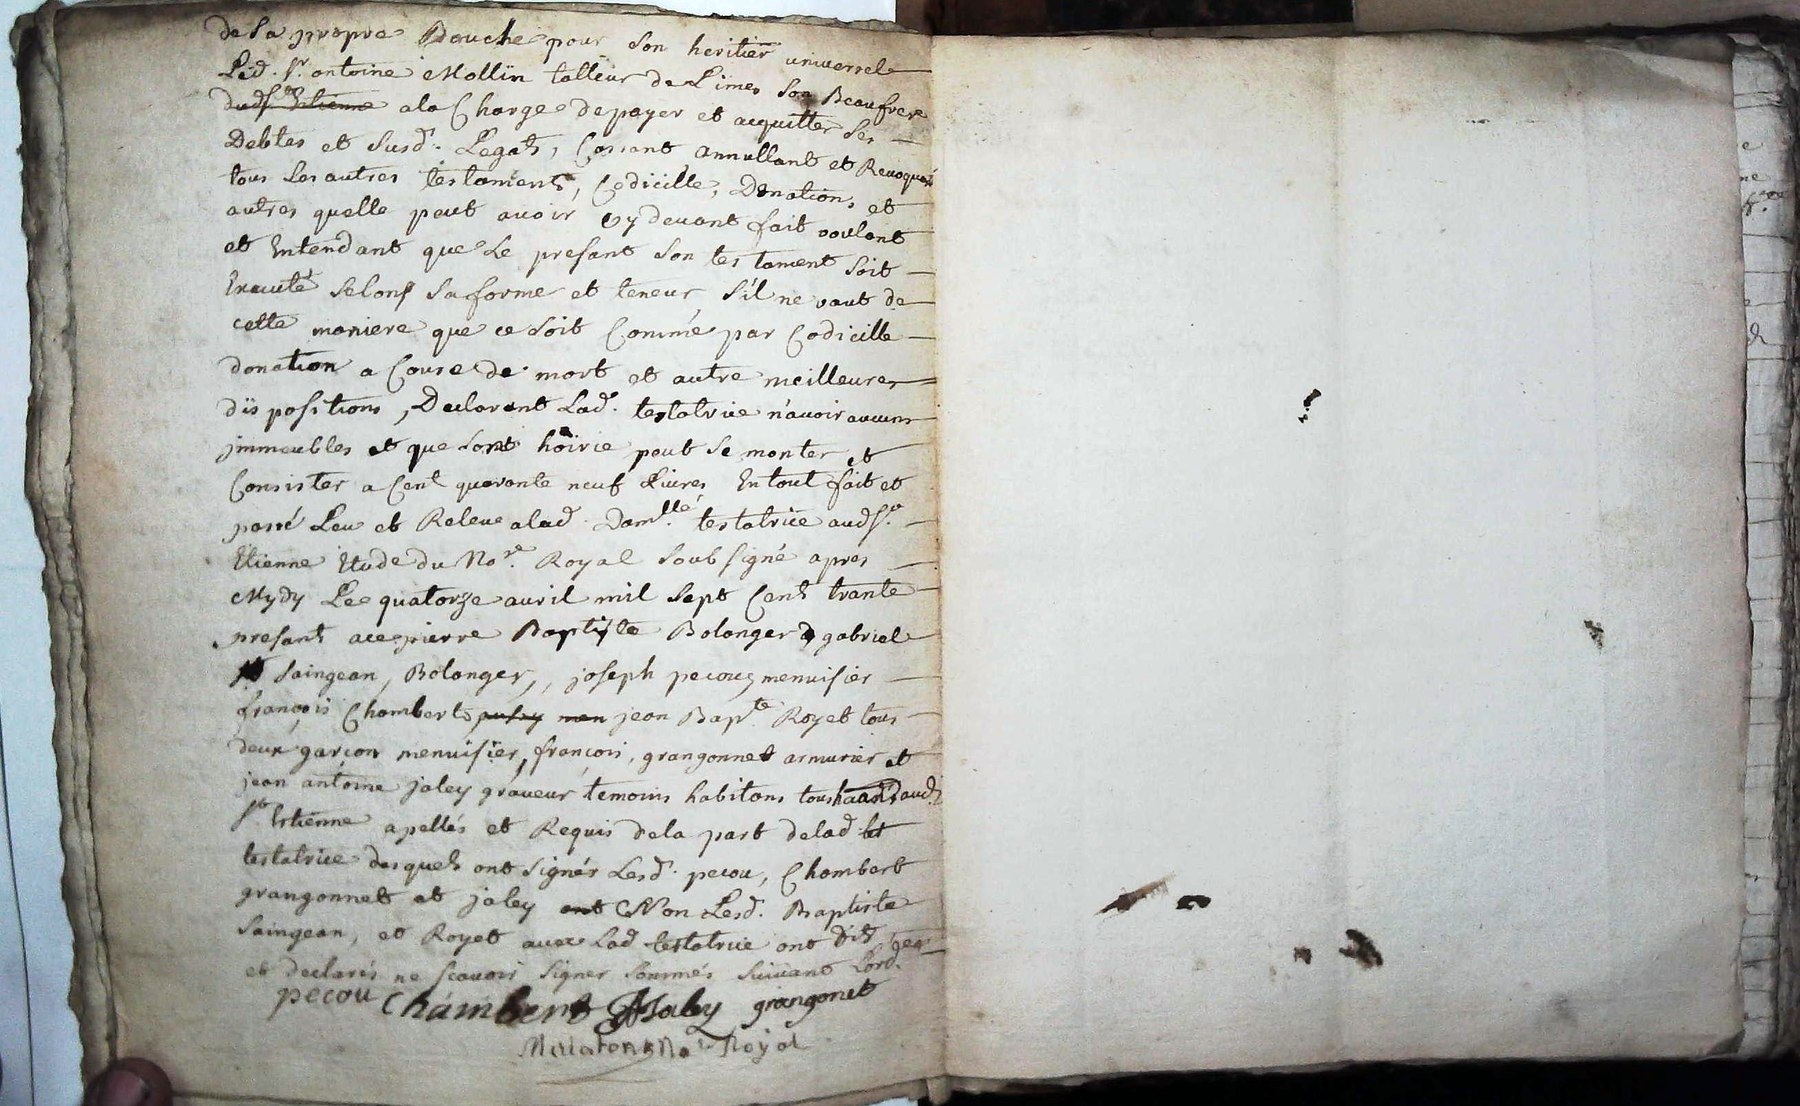 de sa propre Bouche pour son heritier universele
Led. Sr. antoine Mollïn talleur de Limes son Beaufrere
ala Charge de payer et acquitter ses
Debtes et susd. Legats, Cassant annullant et Revoquant
tous les autres testaments, Codicille, Donations et
autres quelle peut avoir Cy devant fait voulant
et Entendant que le presant son testament soit
Executé selons sa forme et teneur s'il ne vaut de
cette maniere que ce soit Comme par Codicille
donation a Couse de mort et autre meilleures
dispositions, Declarant Lad. testatrice n'avoir aucuns
jmmeubles et que sont hoirie peut se monter et
Consister a Cent quarante neuf Livres En tout fait et
passé Leu et Releue alad. Damlle testatrice aud St.
Etienne Etude du Nore. Royal soubsigné apres
Mydy Le quatorze auril mil sept Cent trante
presants ace pierre Baptiste Bolanger gabriel
Saingean, Bolanger, joseph pecoug menuisier
françois Chambert, jean Bapte. Royet tous
deux garçon menuisier, françois, grangonnet armurier et
jean antoine jaley graveur temoins habitans tous aud.
St. Estienne apellés et Requis dela part delad
testatrice desquels ont signés Lesd. pecou, Chambert
grangonnet et jaley Non Lesd. Baptiste
Saingean, et Royet avec Lad testatrice ont dit
et declarés ne scavoir signer sommés suivant Lord.
pecou Chambert JAJaley grangonet
No Royal